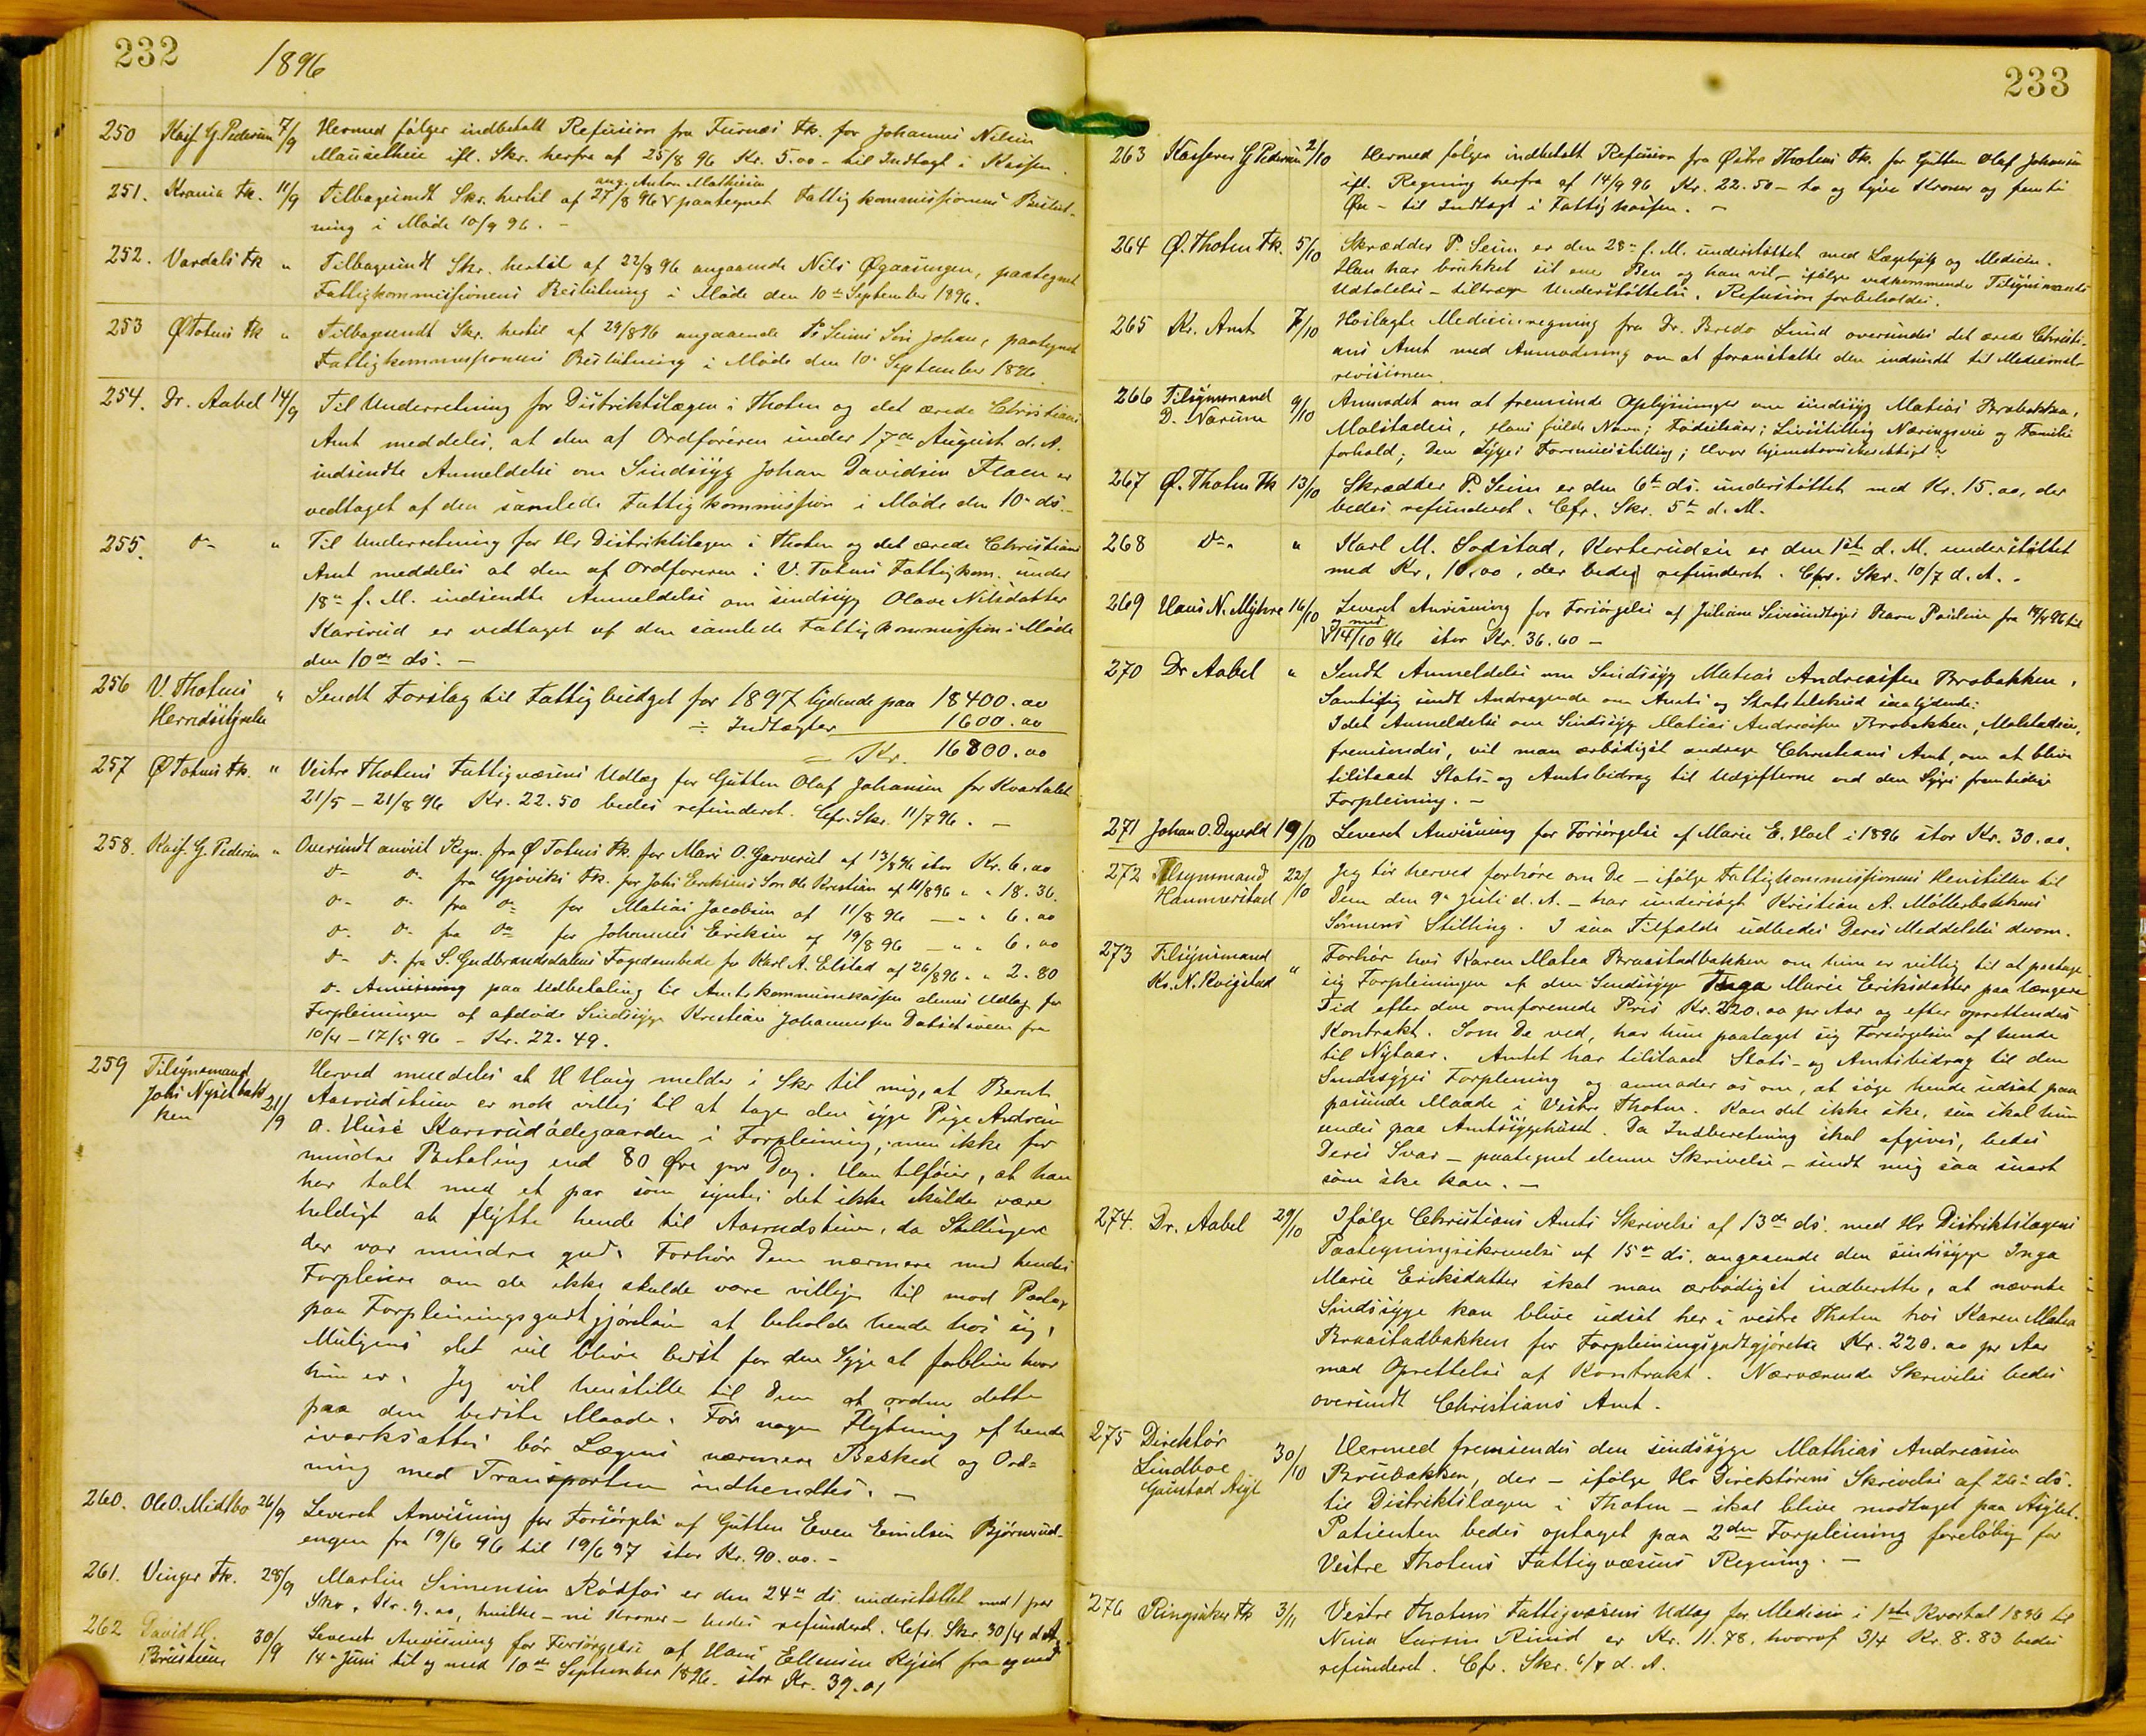 232
1896
250 Kass. G. Pedersen 7/9 Hermed følger indbetalt Refusion fra Furnes Fk. for Johannes Nilsen
ifl. Skr. herfra af 25/8 96 Kr. 5.00 - til Indtægt i Kassen.
ang. Anton Mathiesen
251. Fk. 11/9 Tilbagesendt Skr. hertil af 27/8 96 paategnet Fattigkommissionens Beslut-
ning i Møde 10/9 96. -
252. Vardals Fk " Tilbagesendt Skr. hertil af 22/8 96 angaaende Nils Øgaardingen, paategnet
Fattigkommissionens Beslutning i Møde den 10de September 1896.
253 Ø Totens Fk " Tilbagesendt Skr. hertil af 29/8 96 angaaende P. Seims Søn Johan, paategnet
Fattigkommissionens Beslutning i Møde den 10. September 1896.
254. Dr. Aabel 14/9 Til Underretning for Distriktslægen i Thoten og det ærede Christians
Amt meddeles, at den af Ordføreren under 17de August d. A.
indsendte Anmeldelse om Sindssyg Johan Davidsen Flaen er
vedtaget af den samlede Fattigkommission i Møde den 10. ds.
255. do " Til Underretning for Hr Distriktslægen i Thoten og det ærede Christians
Amt meddeles at den af Ordføreren i V. Totens Fattigkom. under
18de f. M. indsendte Anmeldelse om sindssyg Olave Nilsdatter
Karsrud er vedtaget af den samlede Fattigkommission i Møde
den 10de ds. -
256 V. Thotens " Sendt Forslag til Fattigbudget for 1897 lydende paa 18400.00
Herredsstyrelse ÷ Indtægter 1600.00
Kr. 16800.00
257 Ø Totens Fk. " Vestre Thotens Fattigvæsens Udlæg for Gutten Olaf Johansen for Kvartalet
21/5 - 21/8 96 Kr. 22.50 bedes refunderet. Cfr. Skr. 11/7 96. -
258. Kass. G. Pedersen " Oversendt anvist Regn. fra Ø Totens Fk. for Mari O. Garverud af 13/8 96 stor Kr. 6.00
do do fra Gjøviks Fk. for Johs Eriksens Søn Ole Kristian af 11/8 96 " " 18.36.
do do fra do for Matias Jacobsen af 11/8 96 - " " 6.00
do do fra do for Johannes Eriksen af 19/8 96 - " " 6.00
do do fra S. Gudbrandsdalens Fogedembede for Karl A. Elstad af 26/8 96. " 2.80
do Anvisning paa Udbetaling til Amtskommunekassen dennes Udlæg for
Forpleiningen af afdøde Sindssyge Kristian Johannessen fra
10/4 - 17/5 96 - Kr. 22.49.
259 Tilsynsmand Herved meddeles at H Haug melder i Skr til mig, at Bernt
Johs Nysetbak Aasrudstuen er nok villig til at tage den syge Pige Andrea
ken 21/9 A. Huse Karsrudødegaarden i Forpleining, men ikke for
mindre Betaling end 80 Øre pr Dag. Han tilføier, at han
har talt med et par som syntes det ikke skulde være
heldigt at flytte hende til Aasrudstuen, da Stellingen
der var mindre god. Forhør Dem nærmere med hendes
Forpleiere om de ikke skulde være villige til mod Paalæg
paa Forpleiningsgodtgjørelsen at beholde hende hos sig,
Muligens det vil blive bedst for den Syge at forblive hvor
hun er. Jeg vil henstille til Dem at ordne dette
paa den bedste Maade. Før nogen Flytning af hende
iværksættes bør Lægens nærmere Besked og Ord-
ning med Transporten indhendtes. -
260. Ole O. Midtbo 26/9 Leveret Anvisning for Forsørgelse af Gutten Even Emilsen Bjørnerud-
engen fra 19/6 96 til 19/6 97 stor Kr. 90.00. -
261. Vinger Fk. 28/9 Martin Simensen Rødfos er den 24de ds. understøttet med 1 par
Sko, Kr. 9.00, hvilke - ni Kroner - bedes refunderet. Cfr. Skr. 30/4 d. A.
262 David H. 30/9 Leveret Anvisning for Forsørgelse af Hans Ellensen Ryset fra og med
14. Juni til og med 10de September 1896. stor Kr. 39.01
233
263 Kasserer G Pedersen 2/10 Hermed følger indbetalt Refusion fra Østre Thotens Fk. for Gutten Olaf Johansen
ifl. Regning herfra af 14/9 96 Kr. 22.50 - to og tyve Kroner og femti
Øre - til Indtægt i Fattigkassen. -
264 Ø. Thoten Fk. 5/10 Skrædder P. Seim er den 28de f. M. understøttet med Lægehjælp og Medicin.
Han har brækket sit ene Ben og han vil - ifølge vedkommende Tilsynsmands
Udtalelse - tiltrænge Understøttelse. Refusion forbeholdes.
265 Kr. Amt 7/10 Hoslagte Medicinregning fra Dr. Bredo Lund oversendes det ærede Christi-
ans Amt med Anmodning om at foranstalte den indsendt til Medicinal-
revisionen.
266 Tilsynsmand 9/10 Anmodet om at fremsende Oplysninger om sindssyg Matias Brobakken,
D. Narum Malstadeie, Hans fulde Navn; Fødselsaar; Livsstilling Næringsvei og Familie
forhold; Den Syges Formuesstilling; Hvor hjemstavnsberettiget?
267 Ø. Thoten Fk 13/10 Skrædder P. Seim er den 6te ds. understøttet med Kr. 15.00, der
bedes refunderet. Cfr. Skr. 5te d. M.
268 do " Karl M. Sodstad, er den 1ste d. M. understøttet
med Kr. 10.00, der bedes refunderet. Cfr. Skr. 10/7 d. A. -
269 Hans N. Myhre 16/10 Leveret Anvisning for Forsørgelse af Juliane Barn Pauline fra til
og med
14/10 96 stor Kr. 36.60 -
270 Dr Aabel " Sendt Anmeldelse om Sindssyg Matias Andreassen Brobakken,
Samtidig sendt Andragende om Amts og Statstilskud saalydende:
Idet Anmeldelse om Sindssyg Matias Andreassen Brobakken, Malstadeie,
fremsendes, vil man ærbødigst andrage Christians Amt, om at blive
tilstaaet Stats- og Amtsbidrag til Udgifterne ved den Syges fremtidige
Forpleining. -
271 Johan O. Degvold 19/10 Leveret Anvisning for Forsørgelse af Marie E. Hoel i 1896 stor Kr. 30.00.
272 Tilsynsmand 22/10 Jeg tør herved forhøre om De - ifølge Fattigkommissionens Henstillen til
Hammerstad Dem den 9de Juli d. A. - har undersøgt Kristian A. Møllerbakkens
Sønnens Stilling. I saa Tilfælde udbedes Deres Meddelelse derom.
273 Tilsynsmand " Forhør hos Karen Matea Braastadbakken om hun er villig til at paatage
Kr. N. Kvigstad sig Forpleiningen af den Sindssyge Inga Marie Eriksdatter paa længere
Tid efter den omforenede Pris Kr. 220.00 pr Aar og efter oprettendes
Kontrakt. Som De ved, har hun paataget sig Forsørgelsen af hende
til Nytaar. Amtet har tilstaaet Stats- og Amtsbidrag til den
Sindssyges Forpleining og anmoder os om, at søge hende udsat paa
passende Maade i Vestre Thoten. Kan det ikke ske, saa skal hun
sendes paa Amtssygehuset. Da Indberetning skal afgives, bedes
Deres Svar - paategnet denne Skrivelse - sendt mig saa snart
som ske kan. -
274. Dr. Aabel 29/10 Ifølge Christians Amts Skrivelse af 13de ds. med Hr Distriktslægens
Paategningsskrivelse af 15de ds. angaaende den sindssyge Inga
Marie Eriksdatter skal man ærbødigst indberette, at nævnte
Sindssyge kan blive udsat her i vestre Thoten hos Karen Matea
Braastadbakken for Forpleiningsgodtgjørelse Kr. 220.00 pr Aar
med Oprettelse af Kontrakt. Nærværende Skrivelse bedes
oversendt Christians Amt.
275 Direktør 30/10 Hermed fremsendes den sindssyge Mathias Andreassen
Lindboe Brubakken, der - ifølge Hr Direktørens Skrivelse af 26de ds.
Gaustad Asyl til Distriktslægen i Thoten - skal blive modtaget paa Asylet.
Patienten bedes optaget paa 2den Forpleining foreløbig for
Vestre Thotens Fattigvæsens Regning. -
276 Ringsaker Fk 3/11 Vestre Thotens Fattigvæsens Udlæg for Medicin i 1ste Kvartal 1896 til
Nina Larsen Rusid er Kr. 11.78, hvoraf 3/4 Kr. 8.83 bedes
refunderet. Cfr. Skr. d. A.